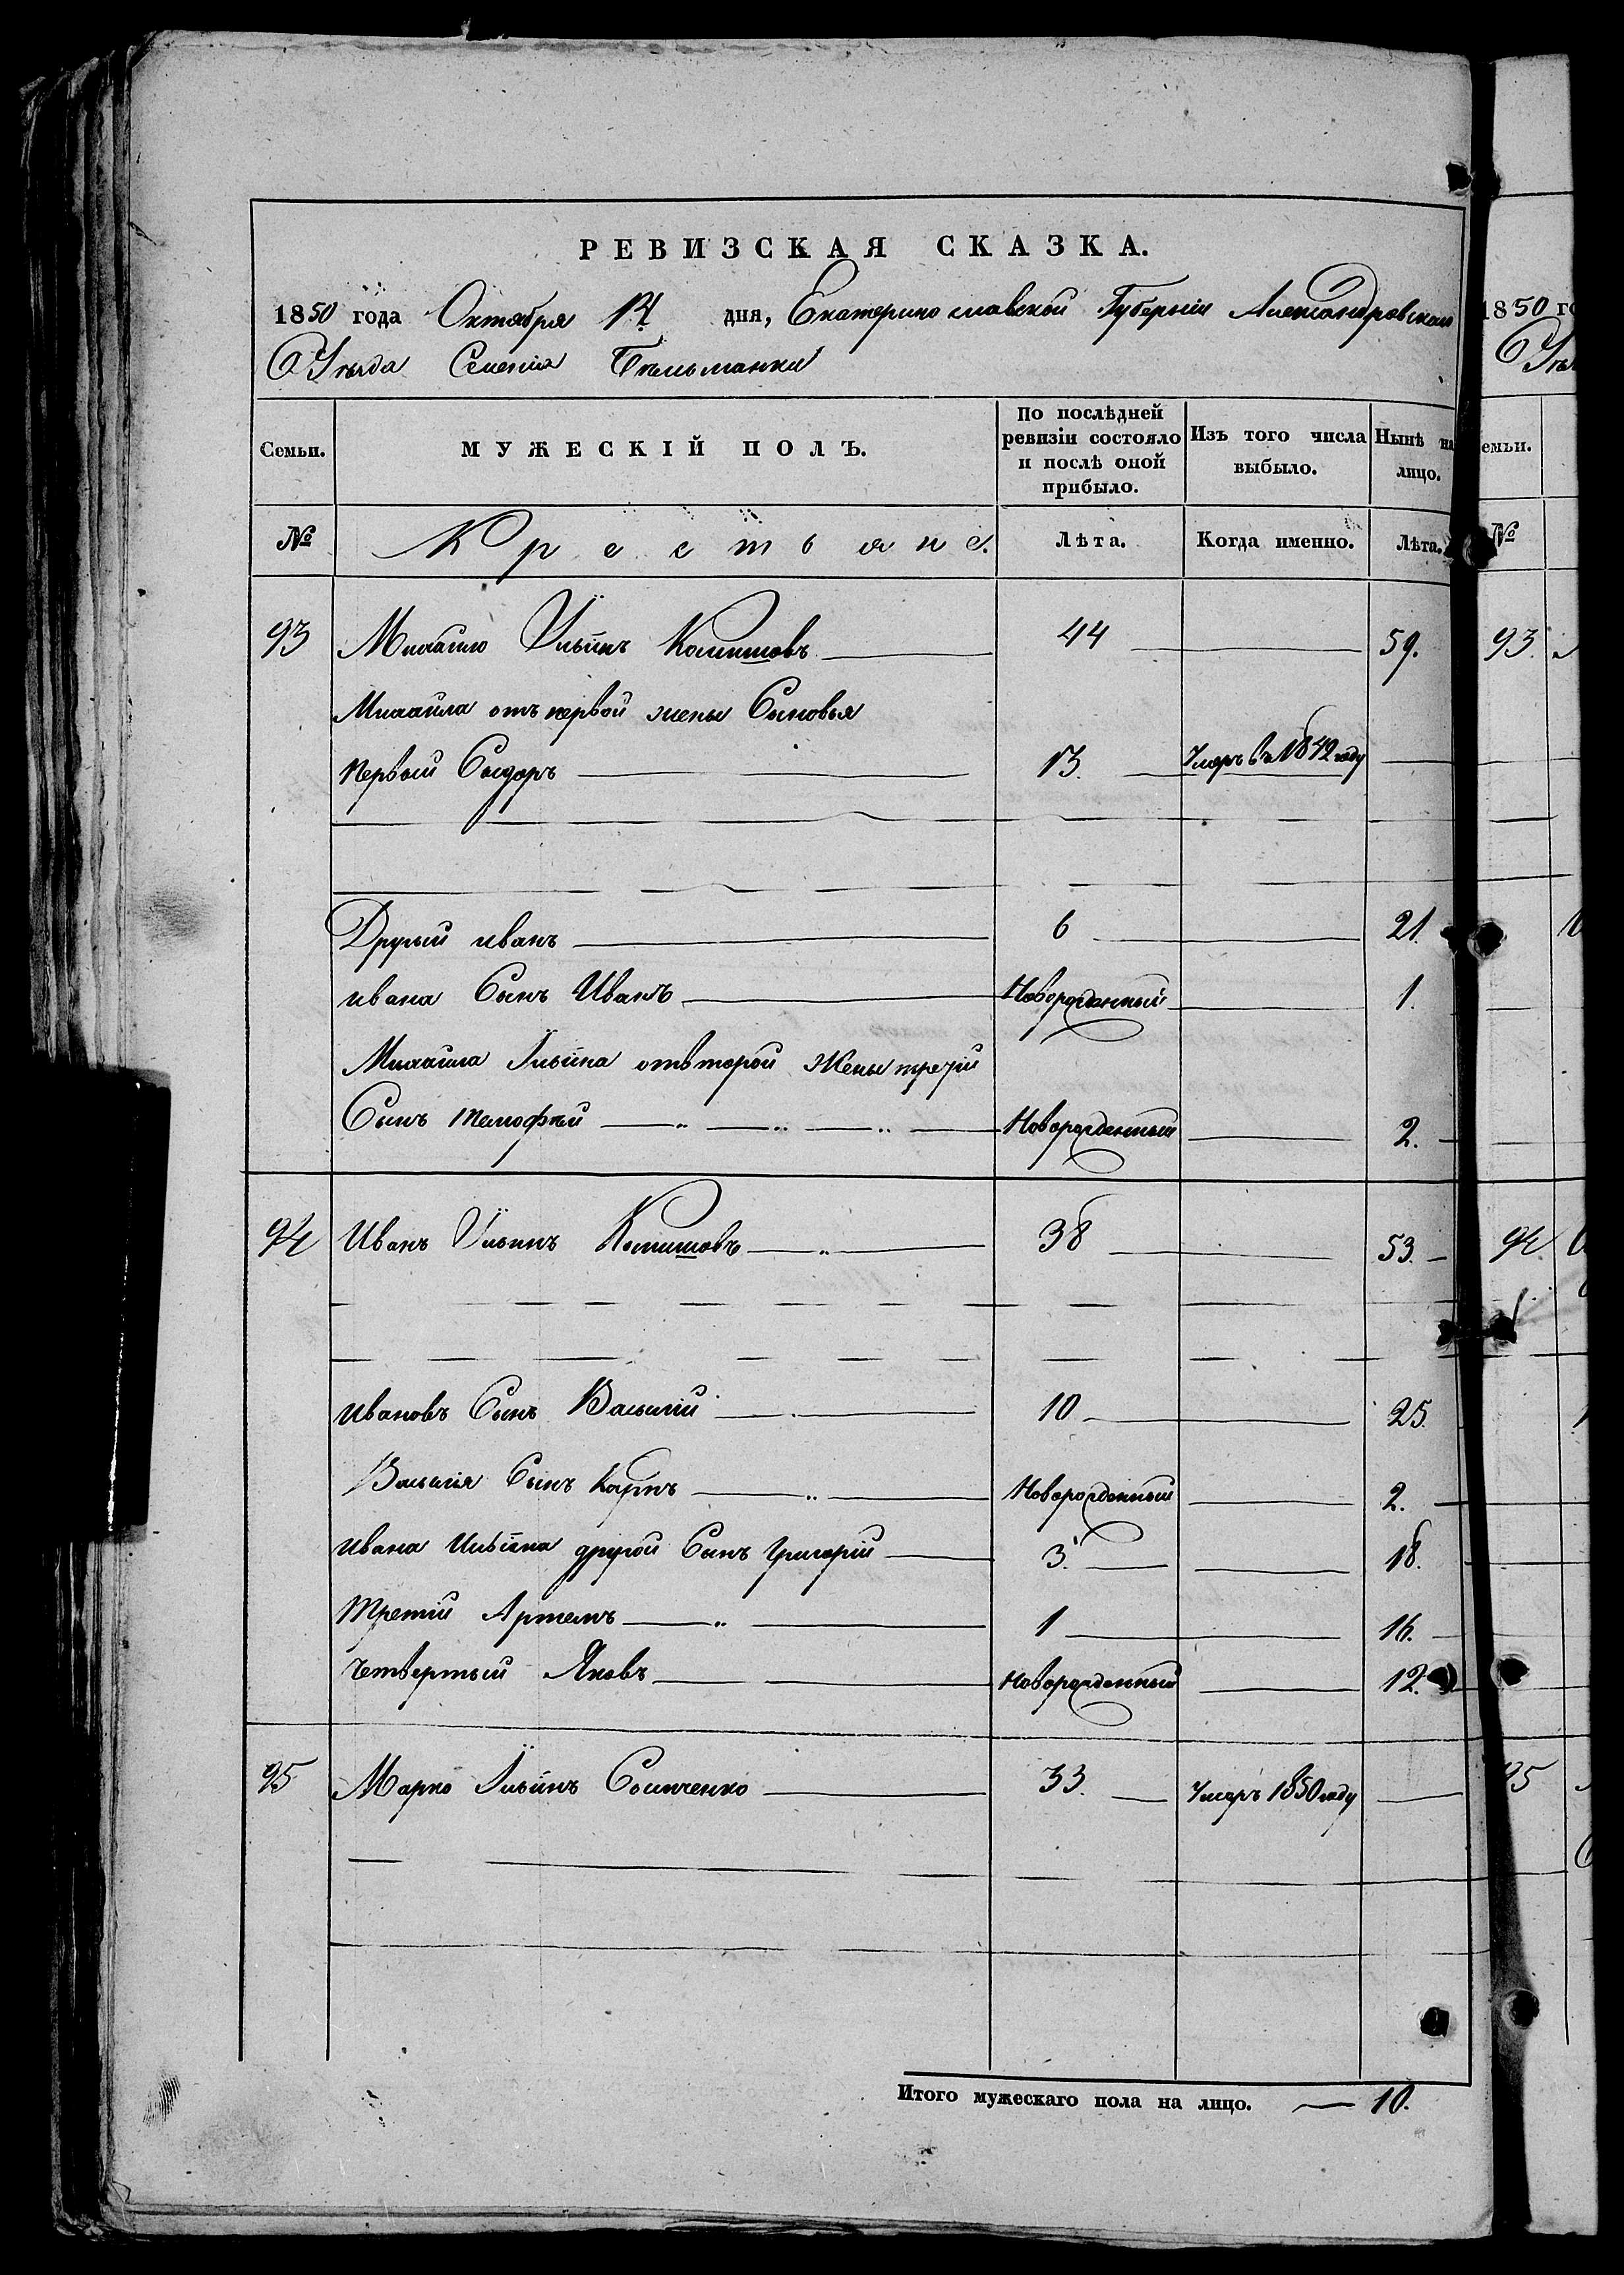 РЕВИЗСКАЯ СКАЗКА.
1850 года Октября дня, Екатеринославской Губерніи Александровскаго
Уѣзда Селенія Бѣльманки
Семьи.
МУЖЕСКІЙ ПОЛЪ.
По послѣдней ревизіи состояло и послѣ оной прибыло.
Изъ того числа выбыло.
Нынѣ на лицо.
№ Крестьяне. Лѣта. Когда именно. Лѣта.
93 Михайло Ильинъ 44 59.
Михайла отъ первой жены Сыновья
первый Сидоръ 13. Умеръ въ 1842 году
Другий иванъ 6 21.
ивана Сынъ Иванъ Новорожденный 1.
Михаила Ильина отвторой Жены третій
Сынъ тимофѣй Новорожденный 2.
94 Иванъ Ильинъ 38 53.
ивановъ Сынъ Василій 10 25.
Василія Сынъ Карпъ Новорожденный 2.
ивана Ильина другой Сынъ Григорій 3. 18.
Третій Артемъ 1 16.
четвертый Яковъ Новорожденный 12.
95 Марко Ильинъ 33. Умеръ 1850 году
Итого мужескаго пола на лицо. 10.
1850 го
емьи.
№
93.
94.
95